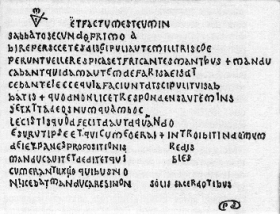 ETFACTUMESTEUMIN
SABBATOSECUNDOPRIMO à
BIREPERSCCETESDISGIPULIAUTEMILLIRISCOE
PERUNTVELLERESPICASETFRICANTESMANIBUS + MANDU
CABANTQUIDAMAUTEMDEFARISAEISDT
CEBANTELECCEQUIAFACIUNTDTSCIPULITVISAB
BATIS + QUODNONLICETRESPONDENSAUTEMINS
SETXTTADEOSNUMQUAMBOC
LECISTISQUODFECITDAUTDQUANDO
ESURUTIPSEETQUICUMEOERAS + INTROIBITINDOMUM
DEIETPANESPROPOSITIONIS REDIS
MANDUCAUITETDEDITETQUI BLES
CUMERANTUXUO QUIBUSNO
NLICEBATMANDUCARESINON SOLIS SACERDOTIBUS
PD